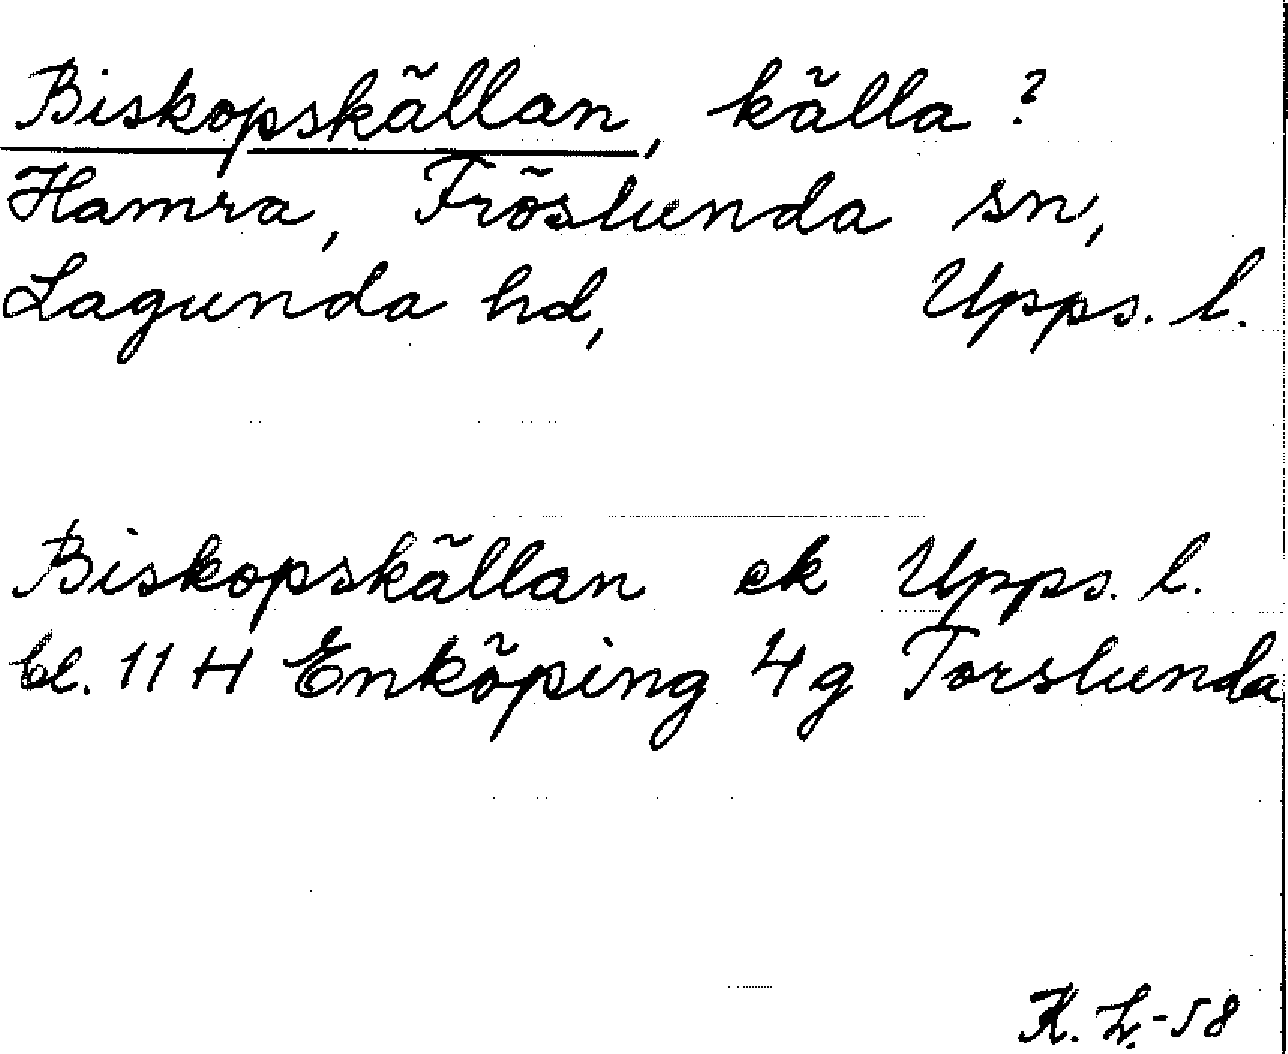 Biskopskällan, källa?
Hamra, Fröslunda sn,
Lagunda hd, Upps. l.
Biskopskällan ek Upps. l.
bl. 11 H Enköping 4g Torslunda
K. L.-58